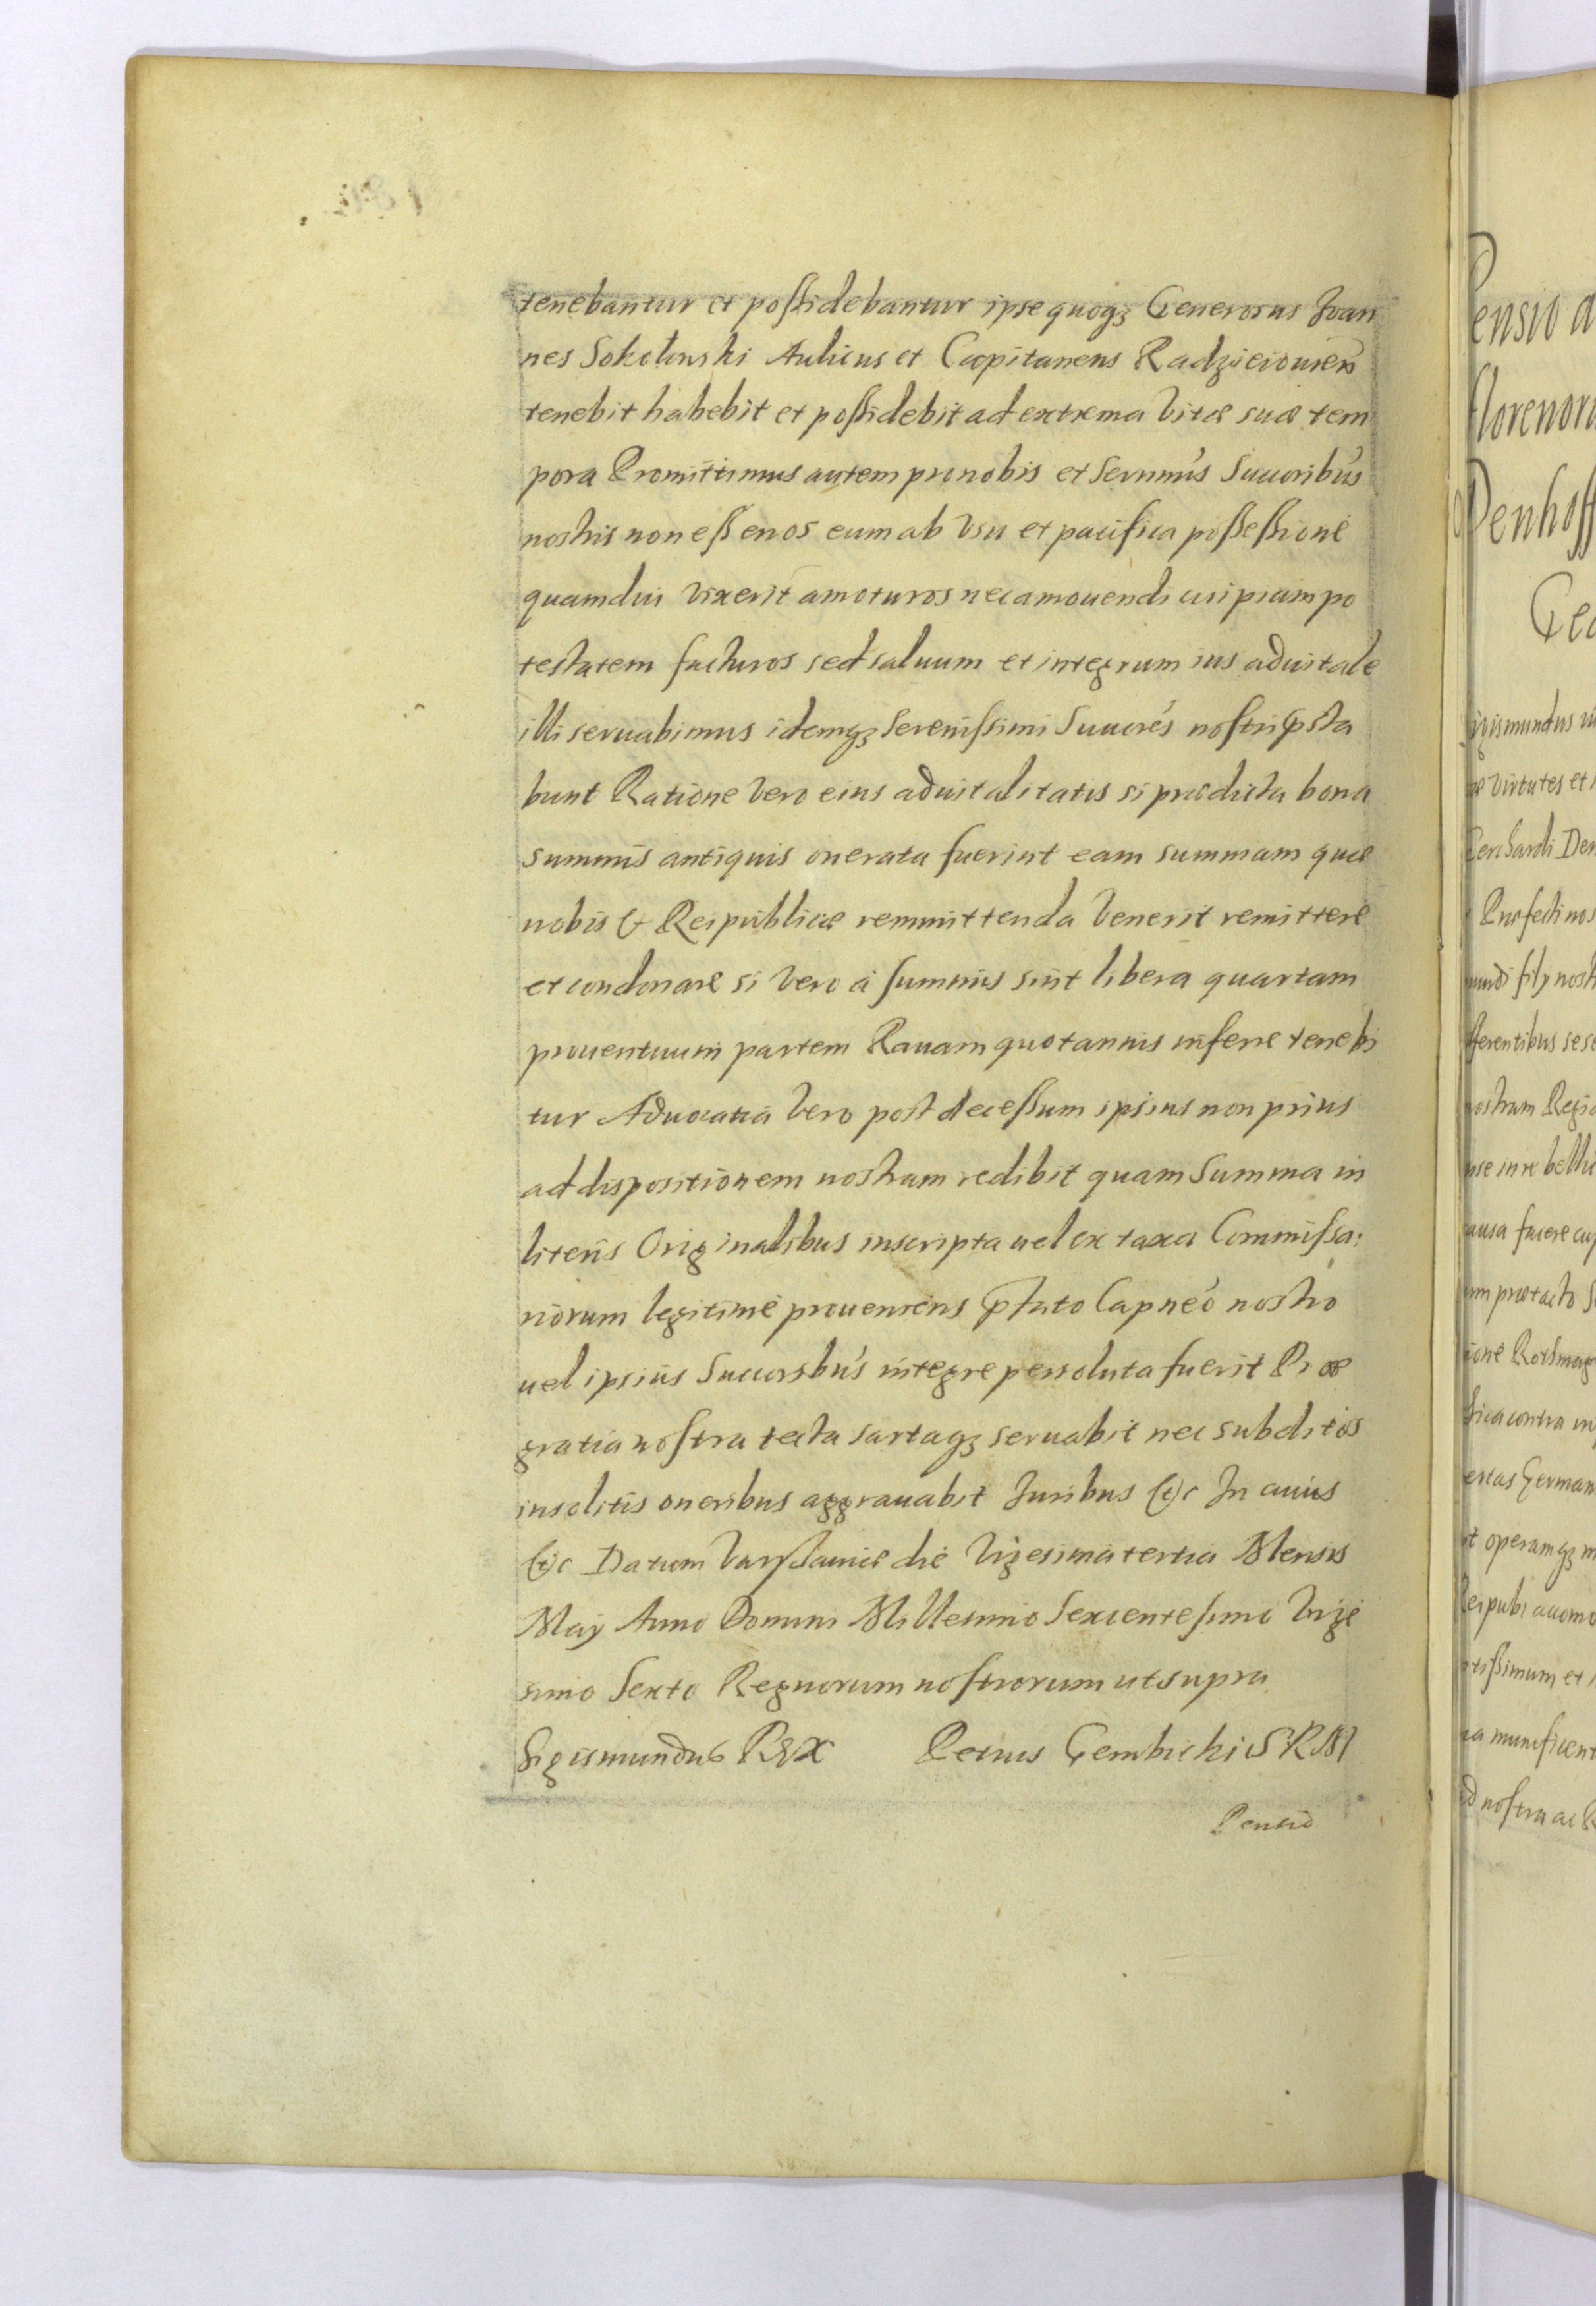 tenebantur et possidebantur ipse quoqꝫ Generosus Joan
nes Sokolowski Aulicus et Capitaneus Radzieiouien̄
tenebit habebit et possidebit ad extrema Vitæ suæ tem
pora Promittimus autem pro nobis et Sernmis Succoribus
nostris non esse nos eum ab Vsu et pacifica possessione
quamdiu Vixerit amoturos nec amouendi cuipiam po
testatem facturos sed saluum et integrum ius aduitale
illi seruabimus idemqꝫ Serenissimi Succores nostri pṣta
bunt Ratione Vero eius aduitalitatis si prædicta bona
summis antiquis onerata fuerint eam summam quæ
nobis & Reipublicæ remmittenda Venerit remittere
et condonare si Vero à summis sint libera quartam
prouentuum partem Rauam quotannis inferre tenebi
tur Aduocatia Vero post decessum ipsius non prius
ad dispositionem nostram redibit quam Summa in
literis Originalibus inscripta uel ex taxa Commissa:
riorum legitime proueniens pṛfato Capneo nostro
uel ipsius Succorsbus integre persoluta fuerit Pro
gratia nostra tecta sartaqꝫ seruabit nec subditos
insolitis oneribus aggrauabit Juribus &c In cuius
&c Datum Varssauiæ die Vigesima tertia Mensis
Maij Anno Domini Millesimo Sexcentesimo Vige
simo Sexto Regnorum nostrorum ut supra
Sigismundus Rex Petrus Gembicki S R M
Pensio
Pensio a
florenor
Denhoff
igismundus
æ Virtutes et
Gerchardi Den
Præfecti nos
mundi filij nost
fferentibus sese
ostram Regia
re bellic
ausa facere cup
um prætacto
ione Rothmag
contra
ertas German
t operamqꝫ
Reipub: accomo
tissimum et
munificent
nostra ac